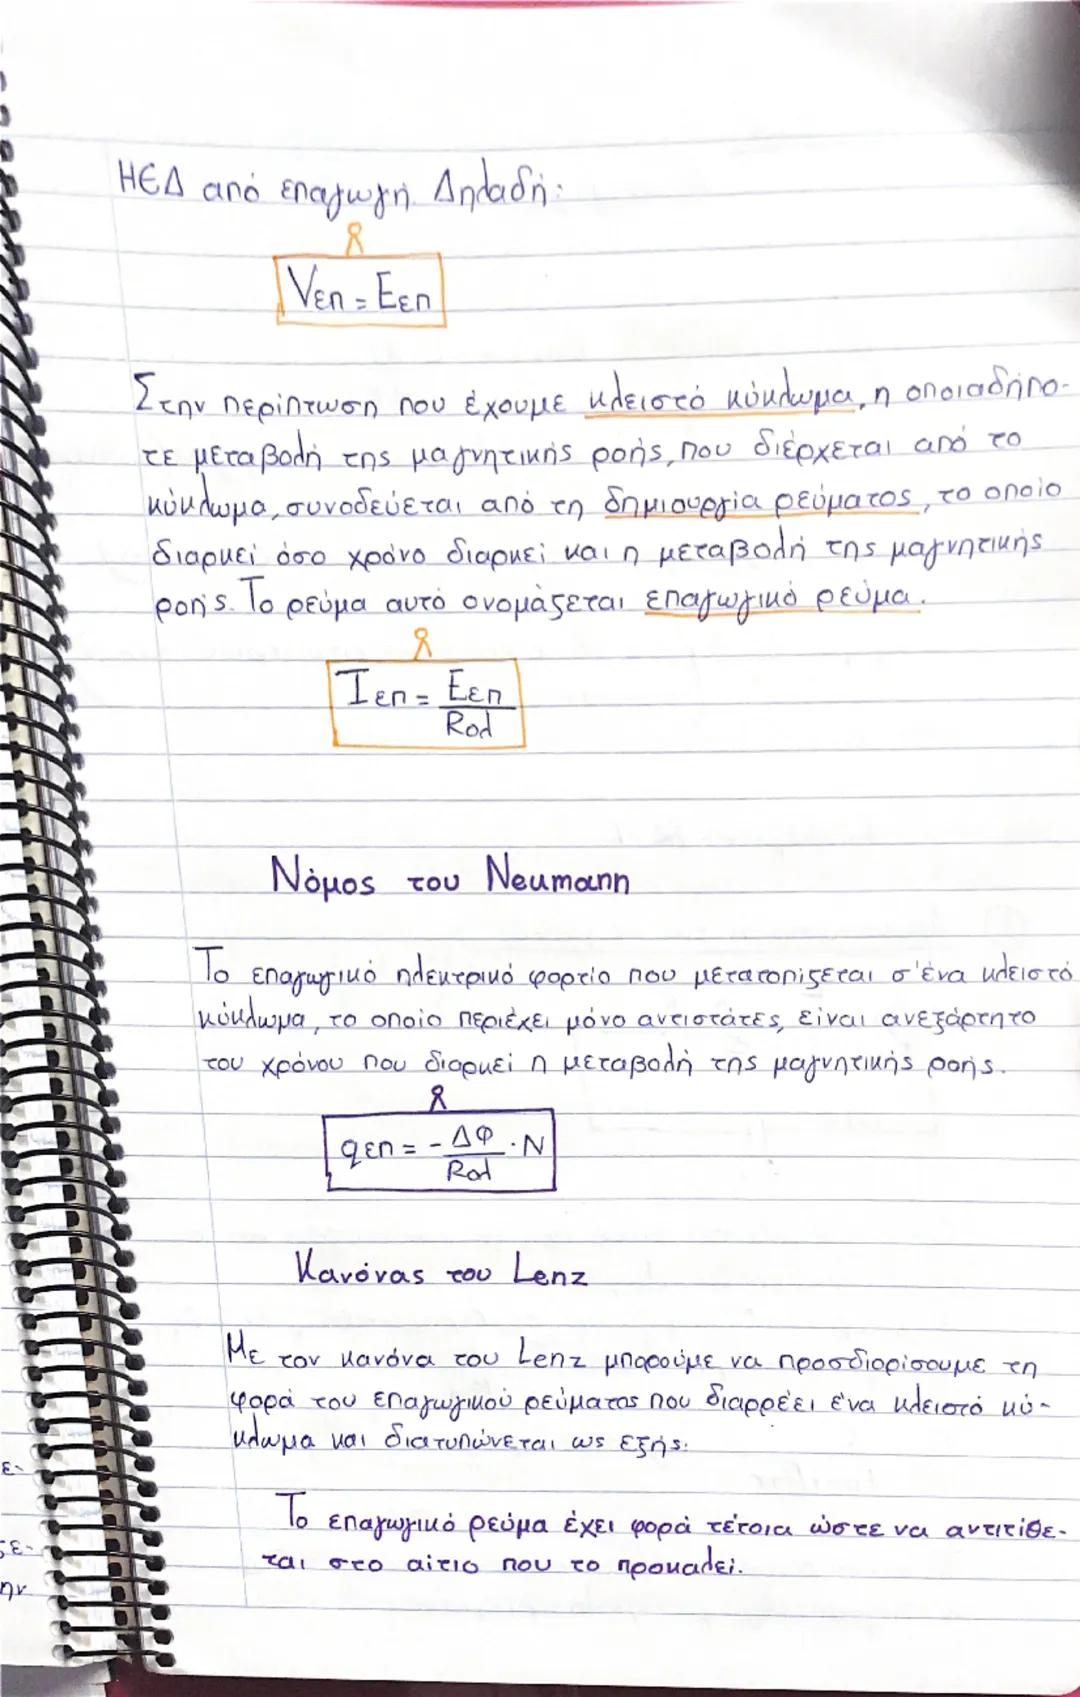 ΗΕΔ από επαγωγή. Δηλαδή:
Vεπ = Εεπ
Στην περίπτωση που έχουμε κλειστό κύκλωμα, η οποιαδήπο-
τε μεταβολή της μαγνητικής ροής, που διέρχεται από το
κύκλωμα, συνοδεύεται από τη δημιουργία ρεύματος, το οποίο
διαρκεί όσο χρόνο διαρκεί και η μεταβολή της μαγνητικής
ροής. Το ρεύμα αυτό ονομάζεται επαγωγικό ρεύμα.
Ιεπ = Εεπ / Rολ
Νόμος του Neumann
Το επαγωγικό ηλεκτρικό φορτίο που μετατοπίζεται σ'ένα κλειστό
κύκλωμα, το οποίο περιέχει μόνο αντιστάτες, είναι ανεξάρτητο
του χρόνου που διαρκεί η μεταβολή της μαγνητικής ροής.
qεπ = - ΔΦ / Rολ · N
Κανόνας του Lenz
Με τον κανόνα του Lenz μπορούμε να προσδιορίσουμε τη
φορά του επαγωγικού ρεύματος που διαρρέει ένα κλειστό κύ-
κλωμα και διατυπώνεται ως εξής:
Το επαγωγικό ρεύμα έχει φορά τέτοια ώστε να αντιτίθε-
ται στο αίτιο που το προκαλεί.
ε-
ην